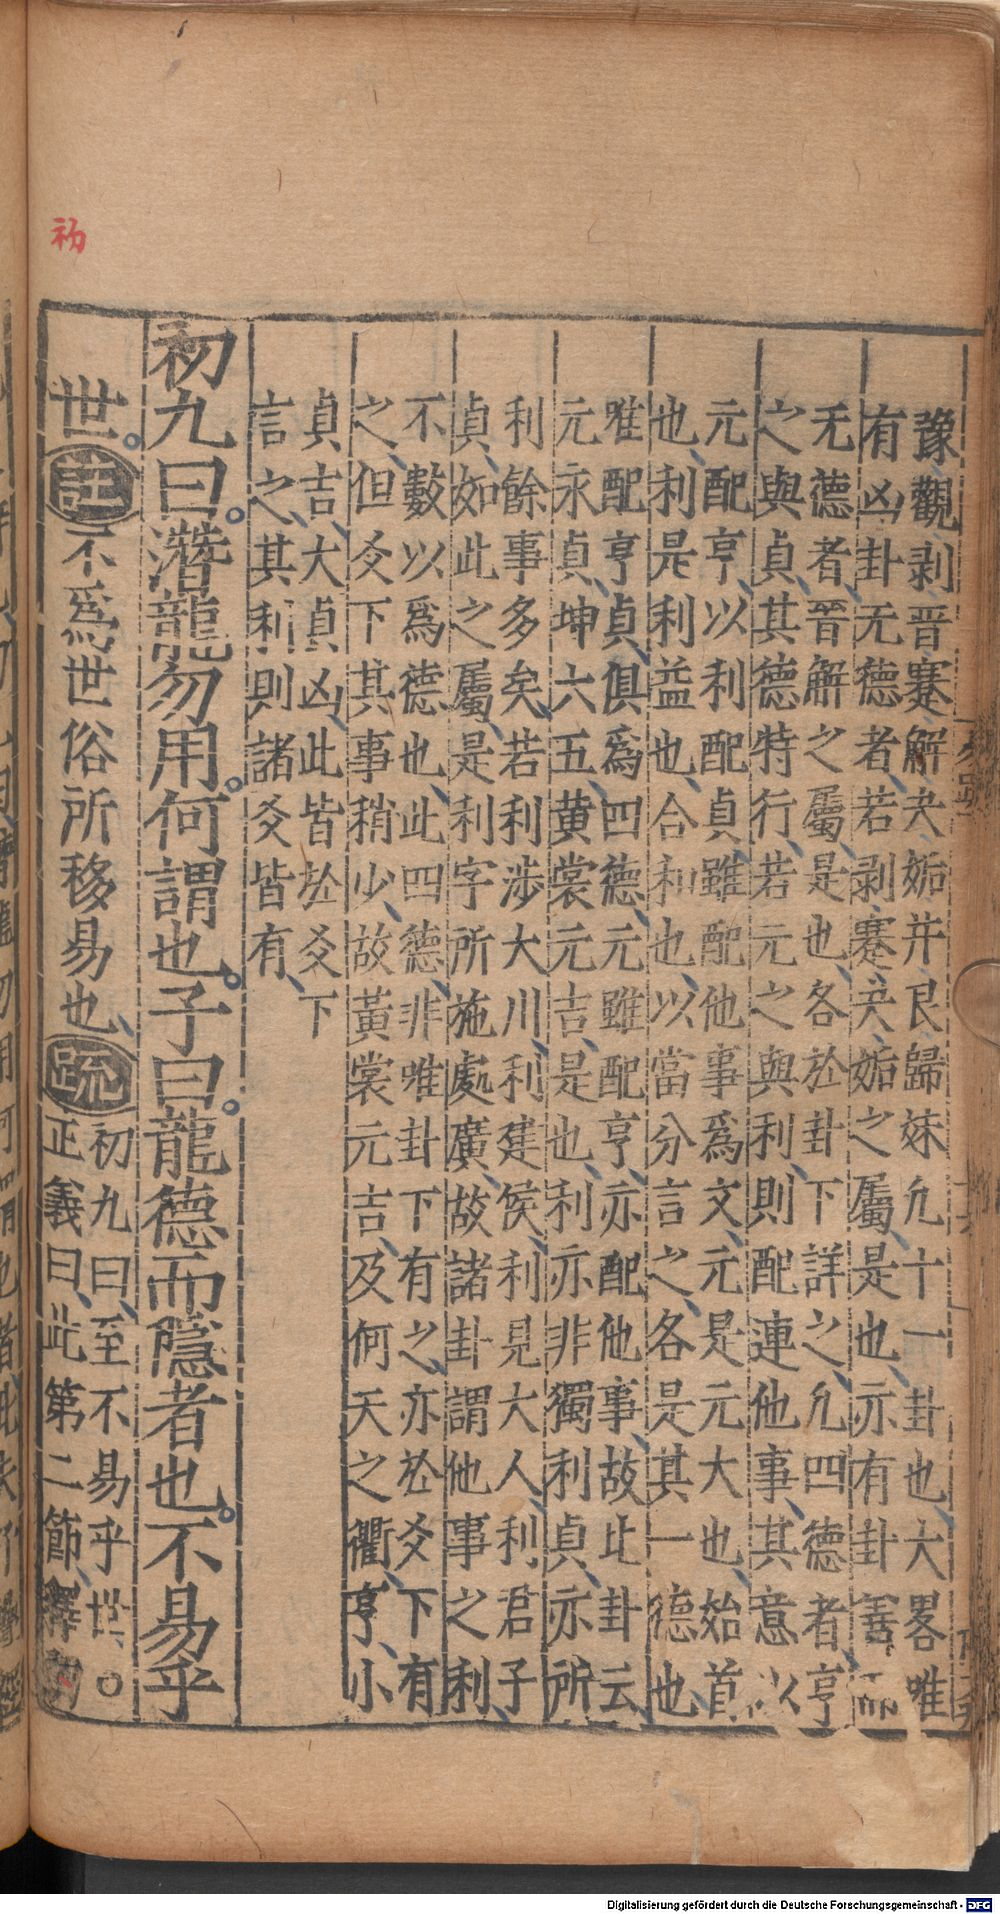 豫觀剥晉蹇解夬姤井艮歸妹凡十一卦也大畧唯
有凶卦无德者若剥蹇夬姤之屬是也亦有卦善而
无德者晉解之屬是也各於卦下詳之凡四德者亨
之與貞其德特行若元之與利則配連他事其意以
元配亨以利配貞雖配他事爲文元是元大也始首
也利是利益也合和也以當分言之各是其一德也
唯配亨貞俱爲四德元雖配亨亦配他事故比卦云
元永貞坤六五黄裳元吉是也利亦非獨利貞亦所
利餘事多矣若利涉大川利建侯利見大人利君子
貞如此之屬是利字所施處廣故諸卦謂他事之利
不數以爲德也此四德非唯卦下有之亦於爻下有
之但爻下其事稍少故黃裳元吉及何天之衢亨小
貞吉大貞凶此皆於爻下
言之其利則諸爻皆有
初九曰潛龍勿用何謂也子曰龍德而隱者也不易乎
世註不爲世俗所移易也疏
初九曰至不易乎世○
正義曰此第二節釋初
初
Digitalisierung gefördert durch die Deutsche Forschungsgemeinschaft - DFG